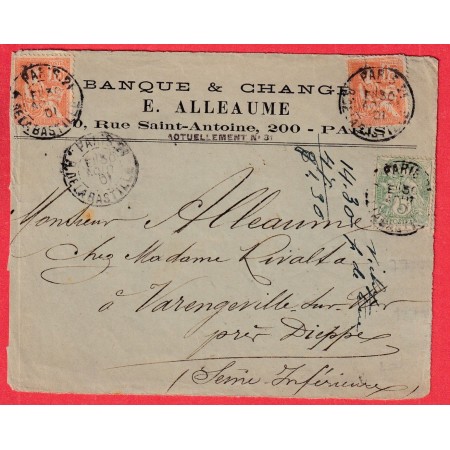 BANQUE & CHANGE
E. ALLEAUME
Rue Saint-Antoine, 200 - PARIS
ACTUELLEMENT N° 31
PARIS 21
Bd DE LA BASTILLE
01
PARIS 21
01
PARIS 21
DE LA BASTILLE
01
PARIS
5
14.30
8.30
Monsieur Alleaume
Chez Madame Rivalta
à Varengeville-sur-Mer
près Dieppe
(Seine Inférieure)